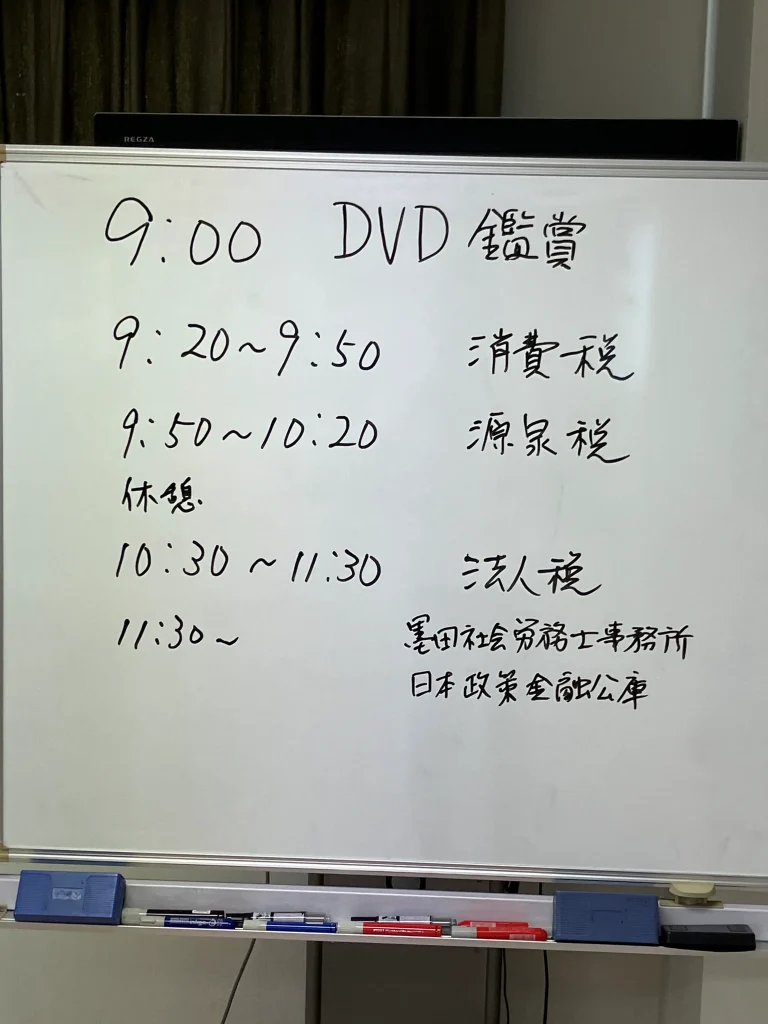 REGZA
9:00 DVD 鑑賞
9:20~9:50 消費税
9:50~10:20 源泉税
休憩.
10:30~11:30 法人税
11:30~ 墨田社会労務士事務所
日本政策金融公庫